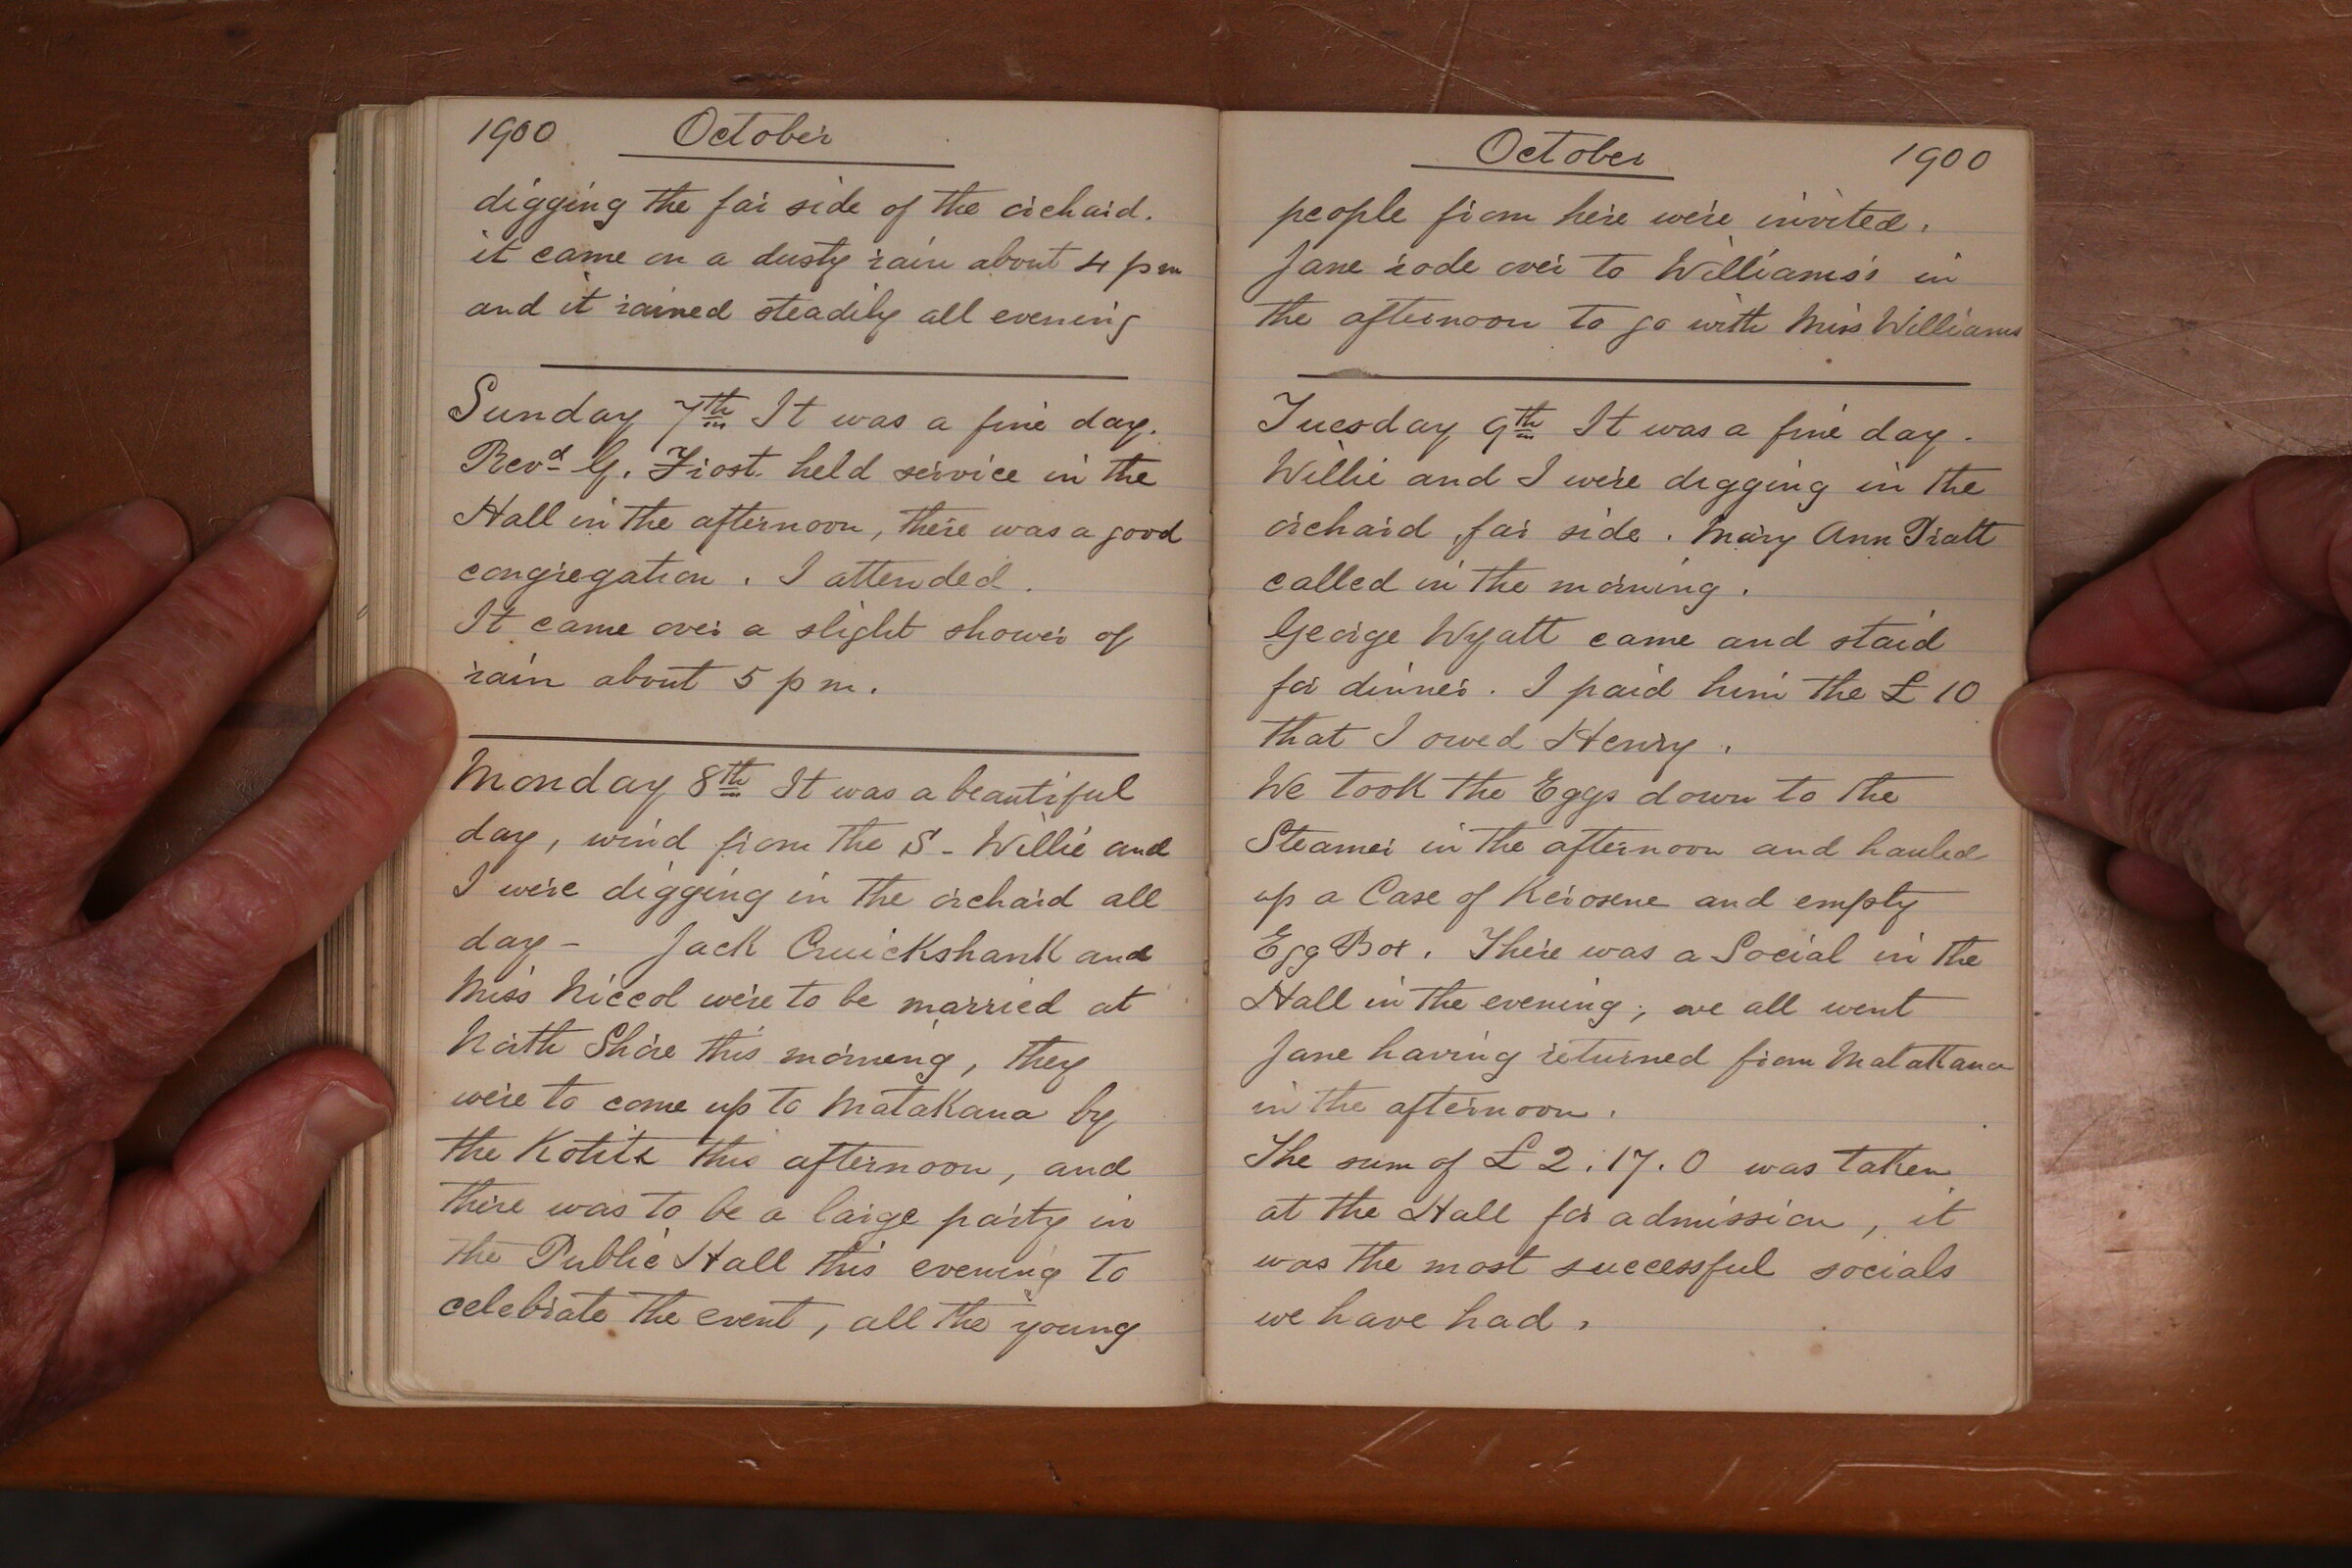 1900 October
digging the far side of the orchard.
it came on a dusty rain about 4 pm
and it rained steadily all evening
Sunday 7th It was a fine day.
Revd G. Frost. held service in the
Hall in the afternoon, there was a good
congregation. I attended.
It came over a slight shower of
rain about 5 pm.
Monday 8th It was a beautiful
day, wind from the S - Willie and
I were digging in the orchard all
day - Jack Cruickshank and
Miss Niccol were to be married at
North Shore this morning, they
were to come up to Matakana by
the Kotiti this afternoon, and
there was to be a large party in
the Public Hall this evening to
celebrate the event, all the young
October 1900
people from here were invited.
Jane rode over to Williams's in
the afternoon to go with Miss Williams
Tuesday 9th It was a fine day.
Willie and I were digging in the
orchard, far side. Mary Ann Pratt
called in the morning.
George Wyatt came and staid
for dinner. I paid him the £10
that I owed Henry.
We took the Eggs down to the
Steamer in the afternoon and hauled
up a Case of Kerosene and empty
Egg Box. There was a Social in the
Hall in the evening; we all went
Jane having returned from Matakana
in the afternoon.
The sum of £2.17.0 was taken
at the Hall for admission, it
was the most successful socials
we have had.